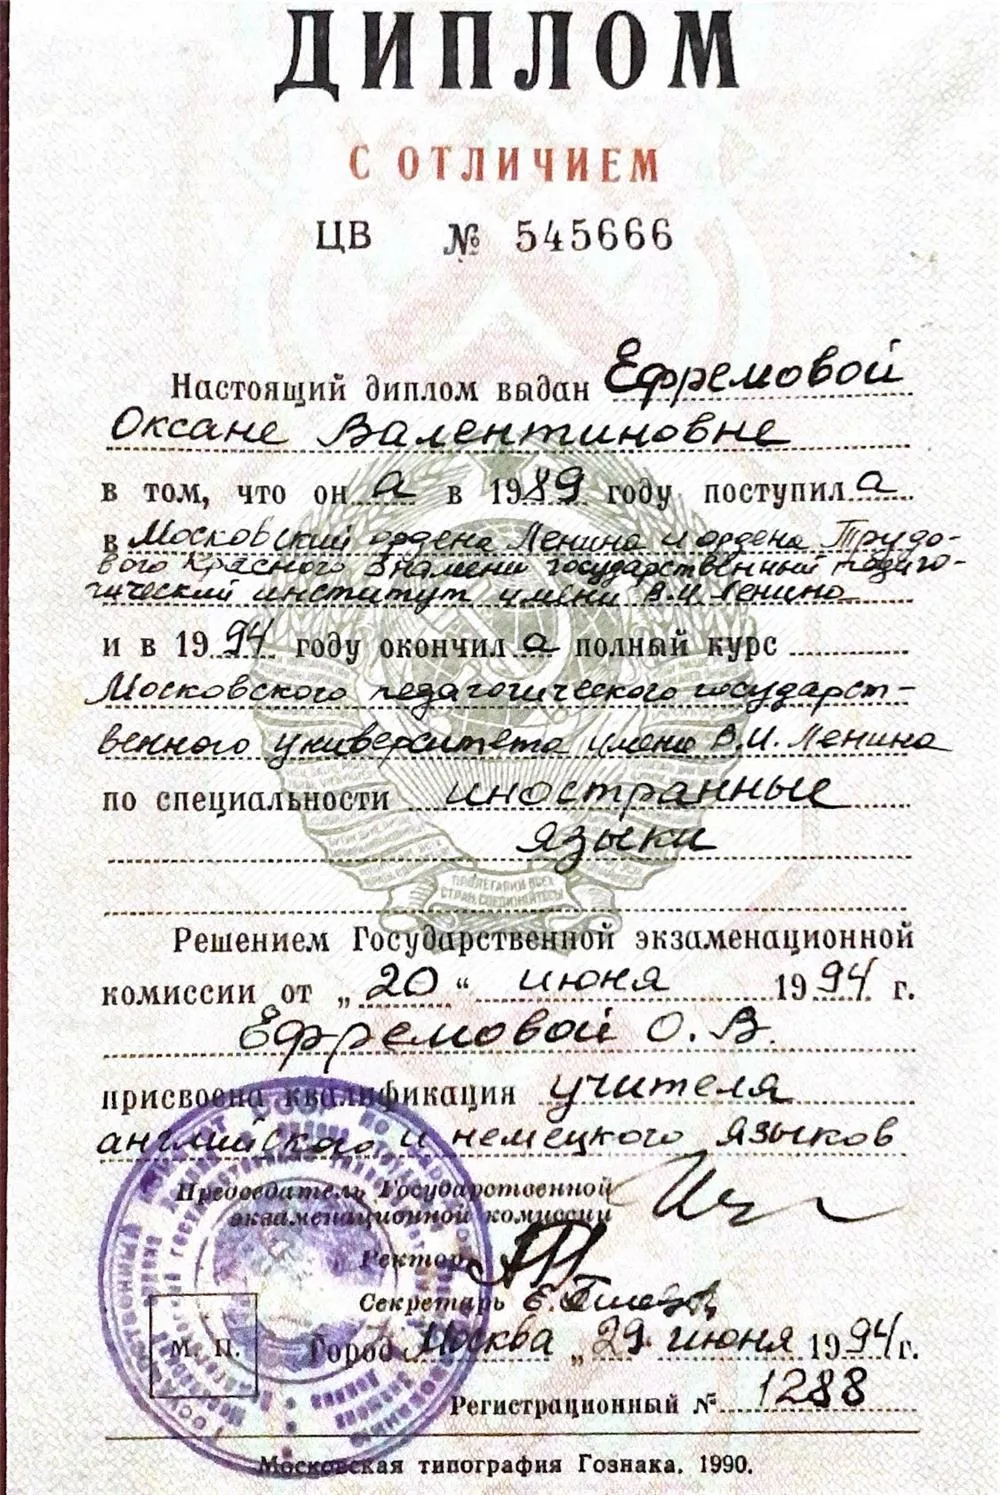 ДИПЛОМ
С ОТЛИЧИЕМ
ЦВ № 545666
Настоящий диплом выдан Ефремовой
Оксане Валентиновне
в том, что он а в 1989 году поступил а
в Московский ордена Ленина и ордена Трудо-
вого Красного Знамени государственный педаго-
гический институт имени В.И. Ленина
и в 1994 году окончил а полный курс
Московского педагогического государст-
венного университета имени В.И. Ленина
по специальности иностранные
языки
ПРОЛЕТАРИИ ВСЕХ
СТРАН, СОЕДИНЯЙТЕСЬ!
Решением Государственной экзаменационной
комиссии от „20“ июня 1994 г.
Ефремовой О. В.
присвоена квалификация учителя
английского и немецкого языков
Председатель Государственной
экзаменационной комиссии
Ректор
Секретарь Е.
М. П.
Город Москва „29 июня 1994 г.
Регистрационный № 1288
Московская типография Гознака. 1990.